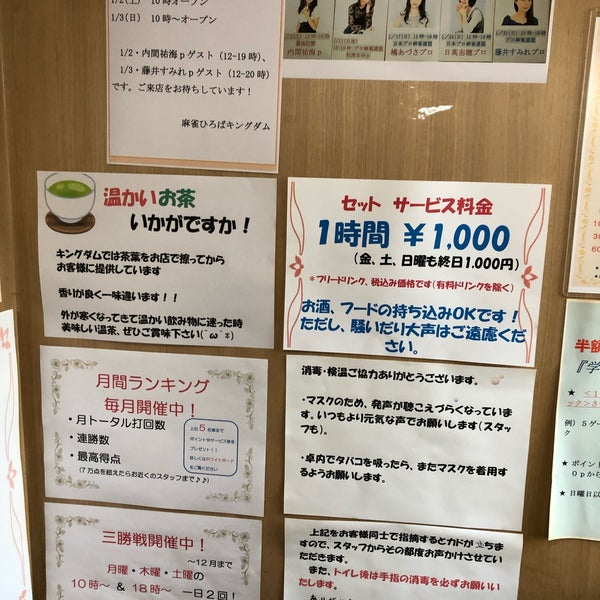 1/2(土) 10時オープン
1/3(日) 10時～オープン
1/2・内間祐海pゲスト(12-19時)、
1/3・藤井すみれpゲスト(12-20時)
です。ご来店をお待ちしています！
麻雀ひろばキングダム
内間祐海p
橘あづさプロ
日髙志穂プロ
藤井すみれプロ
温かいお茶
いかがですか！
キングダムでは茶葉をお店で擦ってから
お客様に提供しています
香りが良く一味違います！！
外が寒くなってきて温かい飲み物に迷った時
美味しい温茶、ぜひご賞味下さい(´ω`*)
セット サービス料金
1時間 ￥1,000
(金、土、日曜も終日1,000円)
*フリードリンク、税込み価格です(有料ドリンクを除く)
お酒、フードの持ち込みOKです！
ただし、騒いだり大声はご遠慮くだ
さい。
月間ランキング
毎月開催中！
・月トータル打回数
・連勝数
・最高得点
(7万点を超えたらお近くのスタッフまで♪♪)
上位5名様まで
ポイントやサービス券を
プレゼント！！
詳しくはホワイトボード
をご覧ください
消毒・検温ご協力ありがとうございます。
・マスクのため、発声が聴こえづらくなっていま
す。いつもより元気な声でお願いします(スタッ
フも)。
・卓内でタバコを吸ったら、またマスクを着用す
るようお願いします。
三勝戦開催中！
～12月まで
月曜・木曜・土曜の
10時～ & 18時～ 一日2回！
上記をお客様同士で指摘するとカドが立ちま
すので、スタッフからその都度お声かけさせてい
ただきます。
また、トイレ後は手指の消毒を必ずお願いい
たします。
半額
『学
例）5ゲー
★ ポイント
0pから
★ 日曜日以